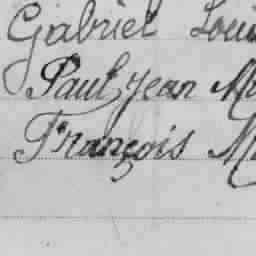 Gabriel Loui
Paul Jean M
François M